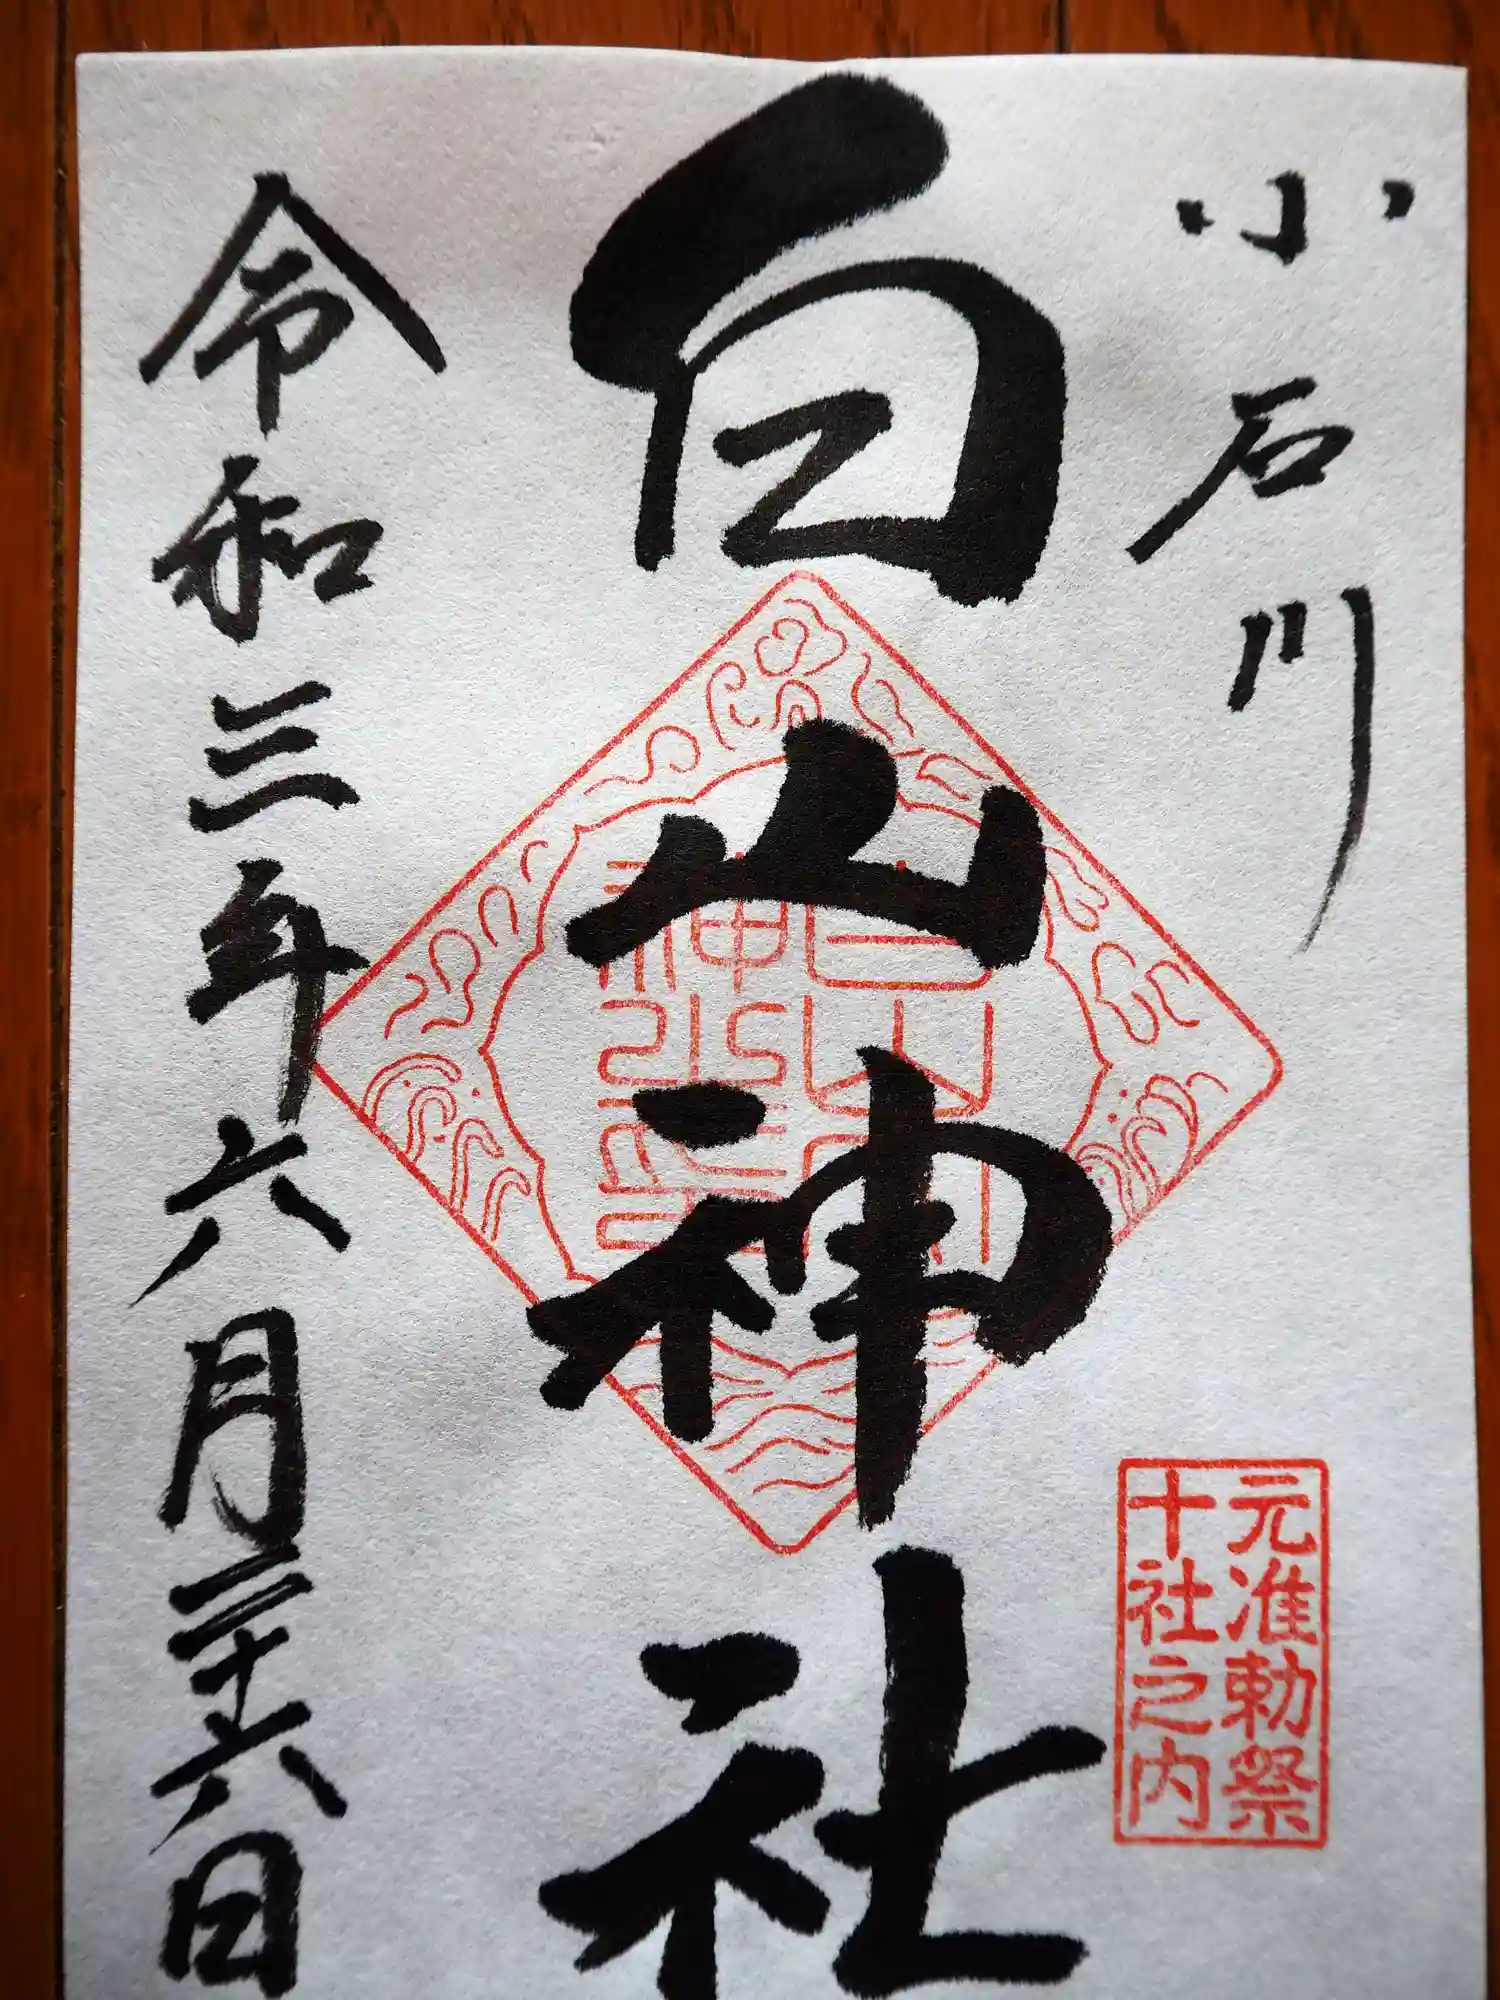 小石川
元准勅祭
十社之内
白山神社
令和三年六月二十六日